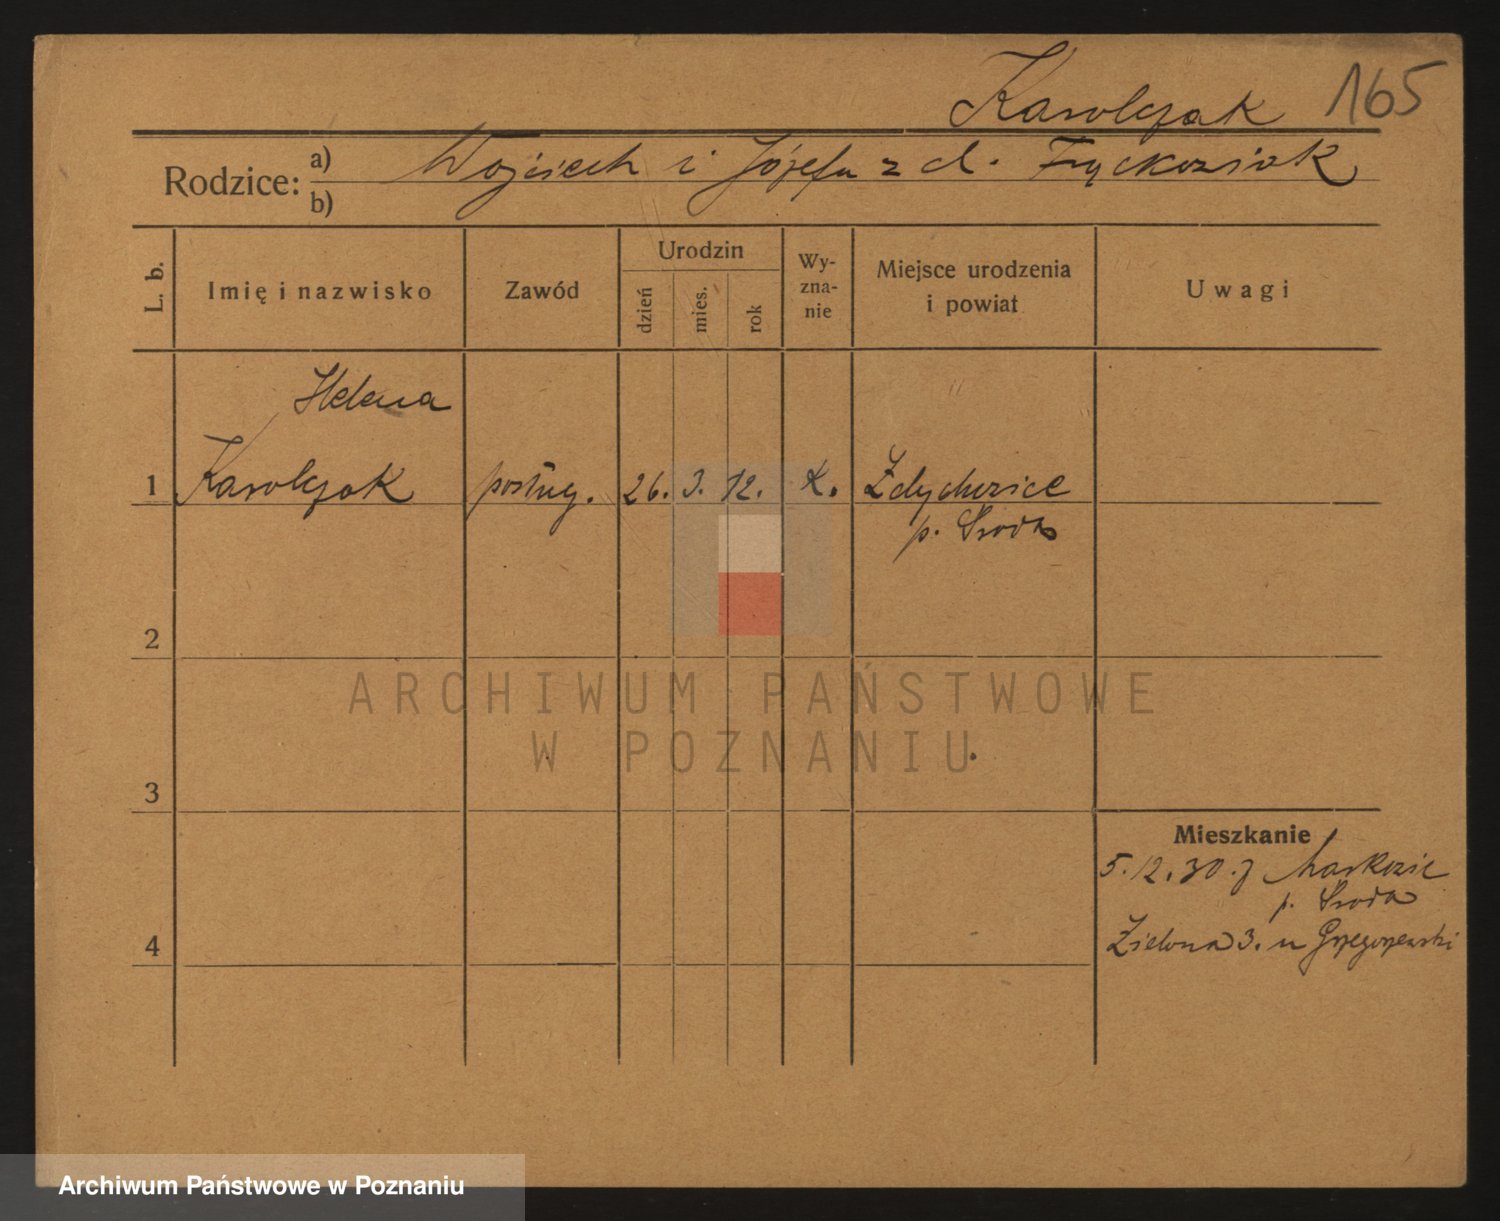 Karolczak 165
Rodzice:
a) Wojciech i Józefa z d. Frąckowiak
b)
L. b.
Imię i nazwisko
Zawód
Urodzin
dzień
mies.
rok
Wy-
zna-
nie
Miejsce urodzenia
i powiat
Uwagi
Helena
1 Karolczak posług. 26. 3. 12. K. Zdychowice
p. Środa
2
3
4
Mieszkanie
5.12.30. z
p. Środa
Zielona 3. u Grzegorzewski
ARCHIWUM PAŃSTWOWE
W POZNANIU
Archiwum Państwowe w Poznaniu